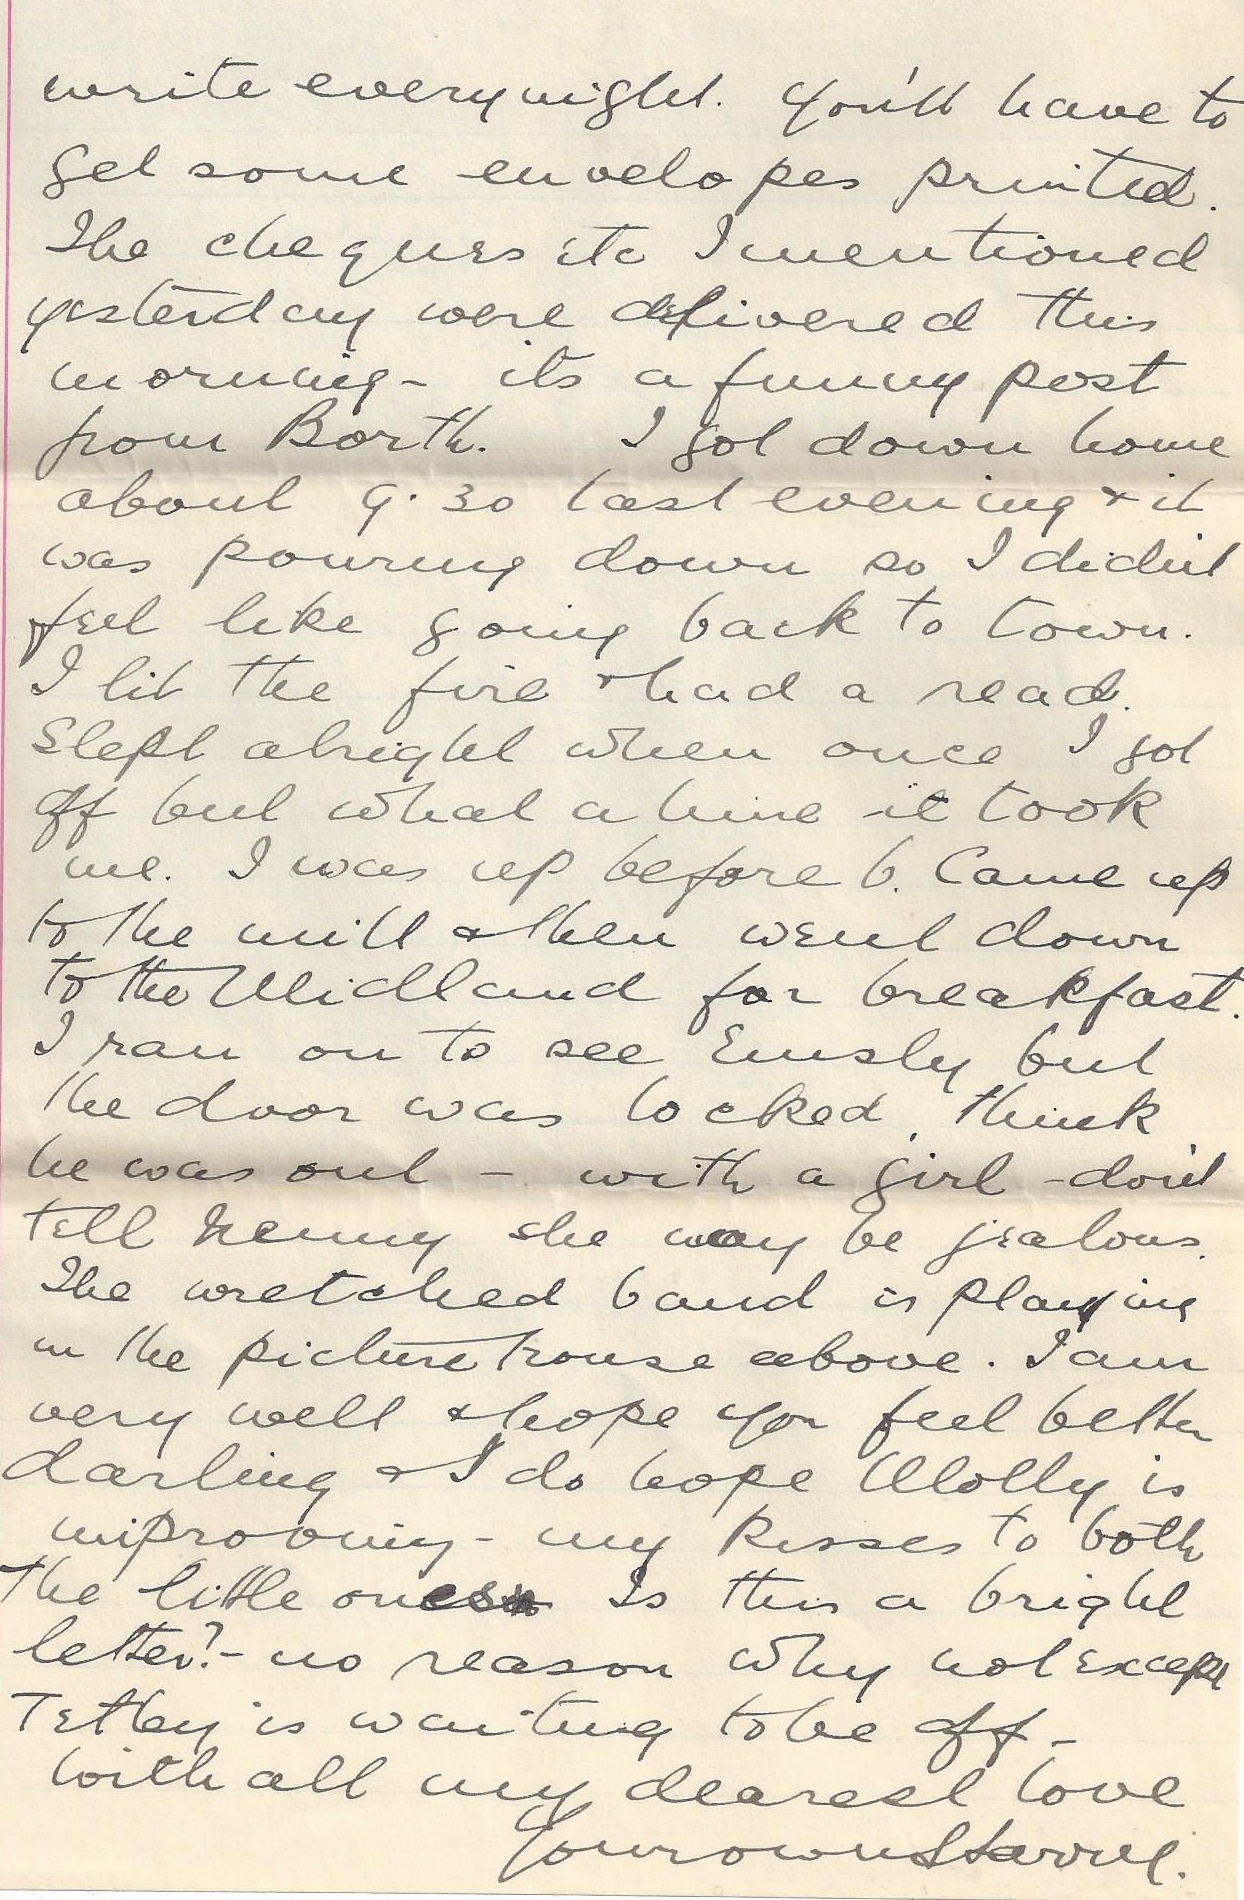 write every night. You'll have to
get some envelopes printed.
The cheques etc I mentioned
yesterday were delivered this
morning - its a funny post
from Borth. I got down home
about 9.30 last evening & it
was pouring down so I didn't
feel like going back to town.
I lit the fire & had a read.
Slept alright when once I got
off but what a time it took
me. I was up before 6. Came up
to the mill & then went down
to the Midland for breakfast.
I ran on to see Emsly but
the door was locked, think
he was out - with a girl - don't
tell she may be jealous.
The wretched band is playing
in the picture house above. I am
very well & hope you feel better
darling & I do hope Molly is
improving - my kisses to both
the little ones Is this a bright
letter? - no reason why not except
Tetley is waiting to be off -
with all my dearest love
Your own